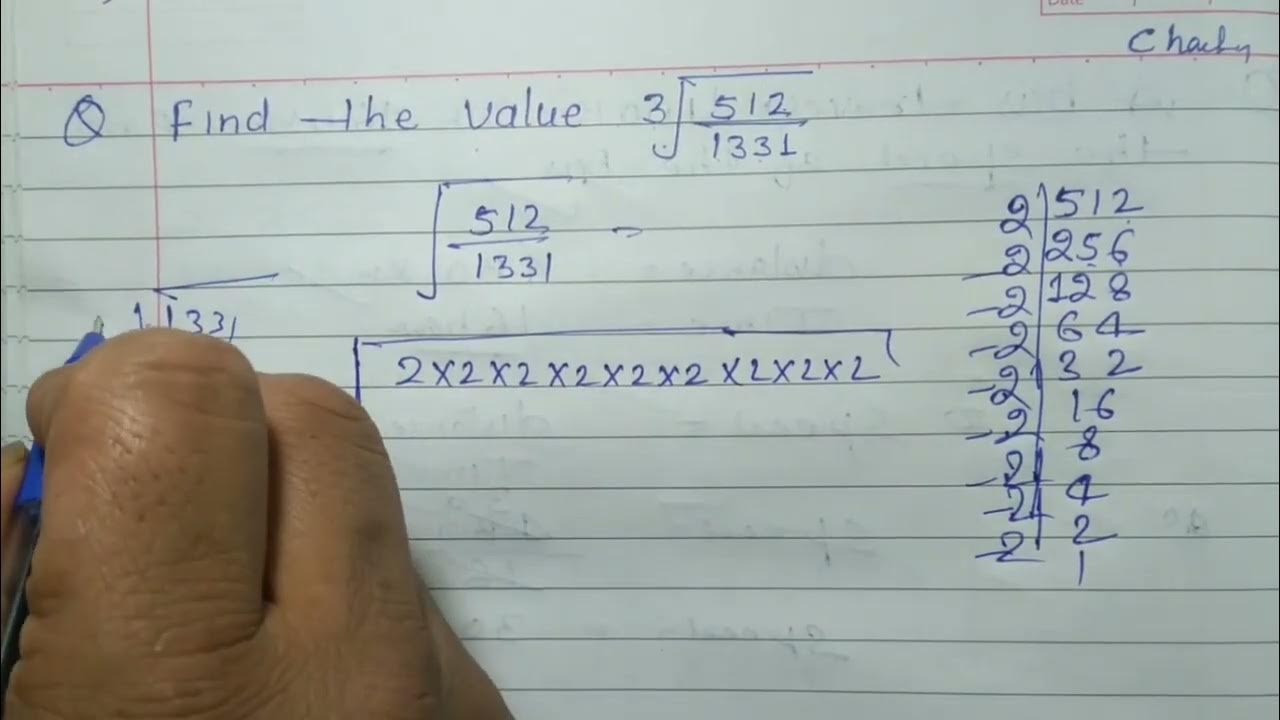 Date
Q Find the value 3√512/1331
√512/1331 -
1331
2×2×2×2×2×2×2×2×2
2 | 512
2 | 256
2 | 128
2 | 64
2 | 32
2 | 16
2 | 8
2 | 4
2 | 2
1